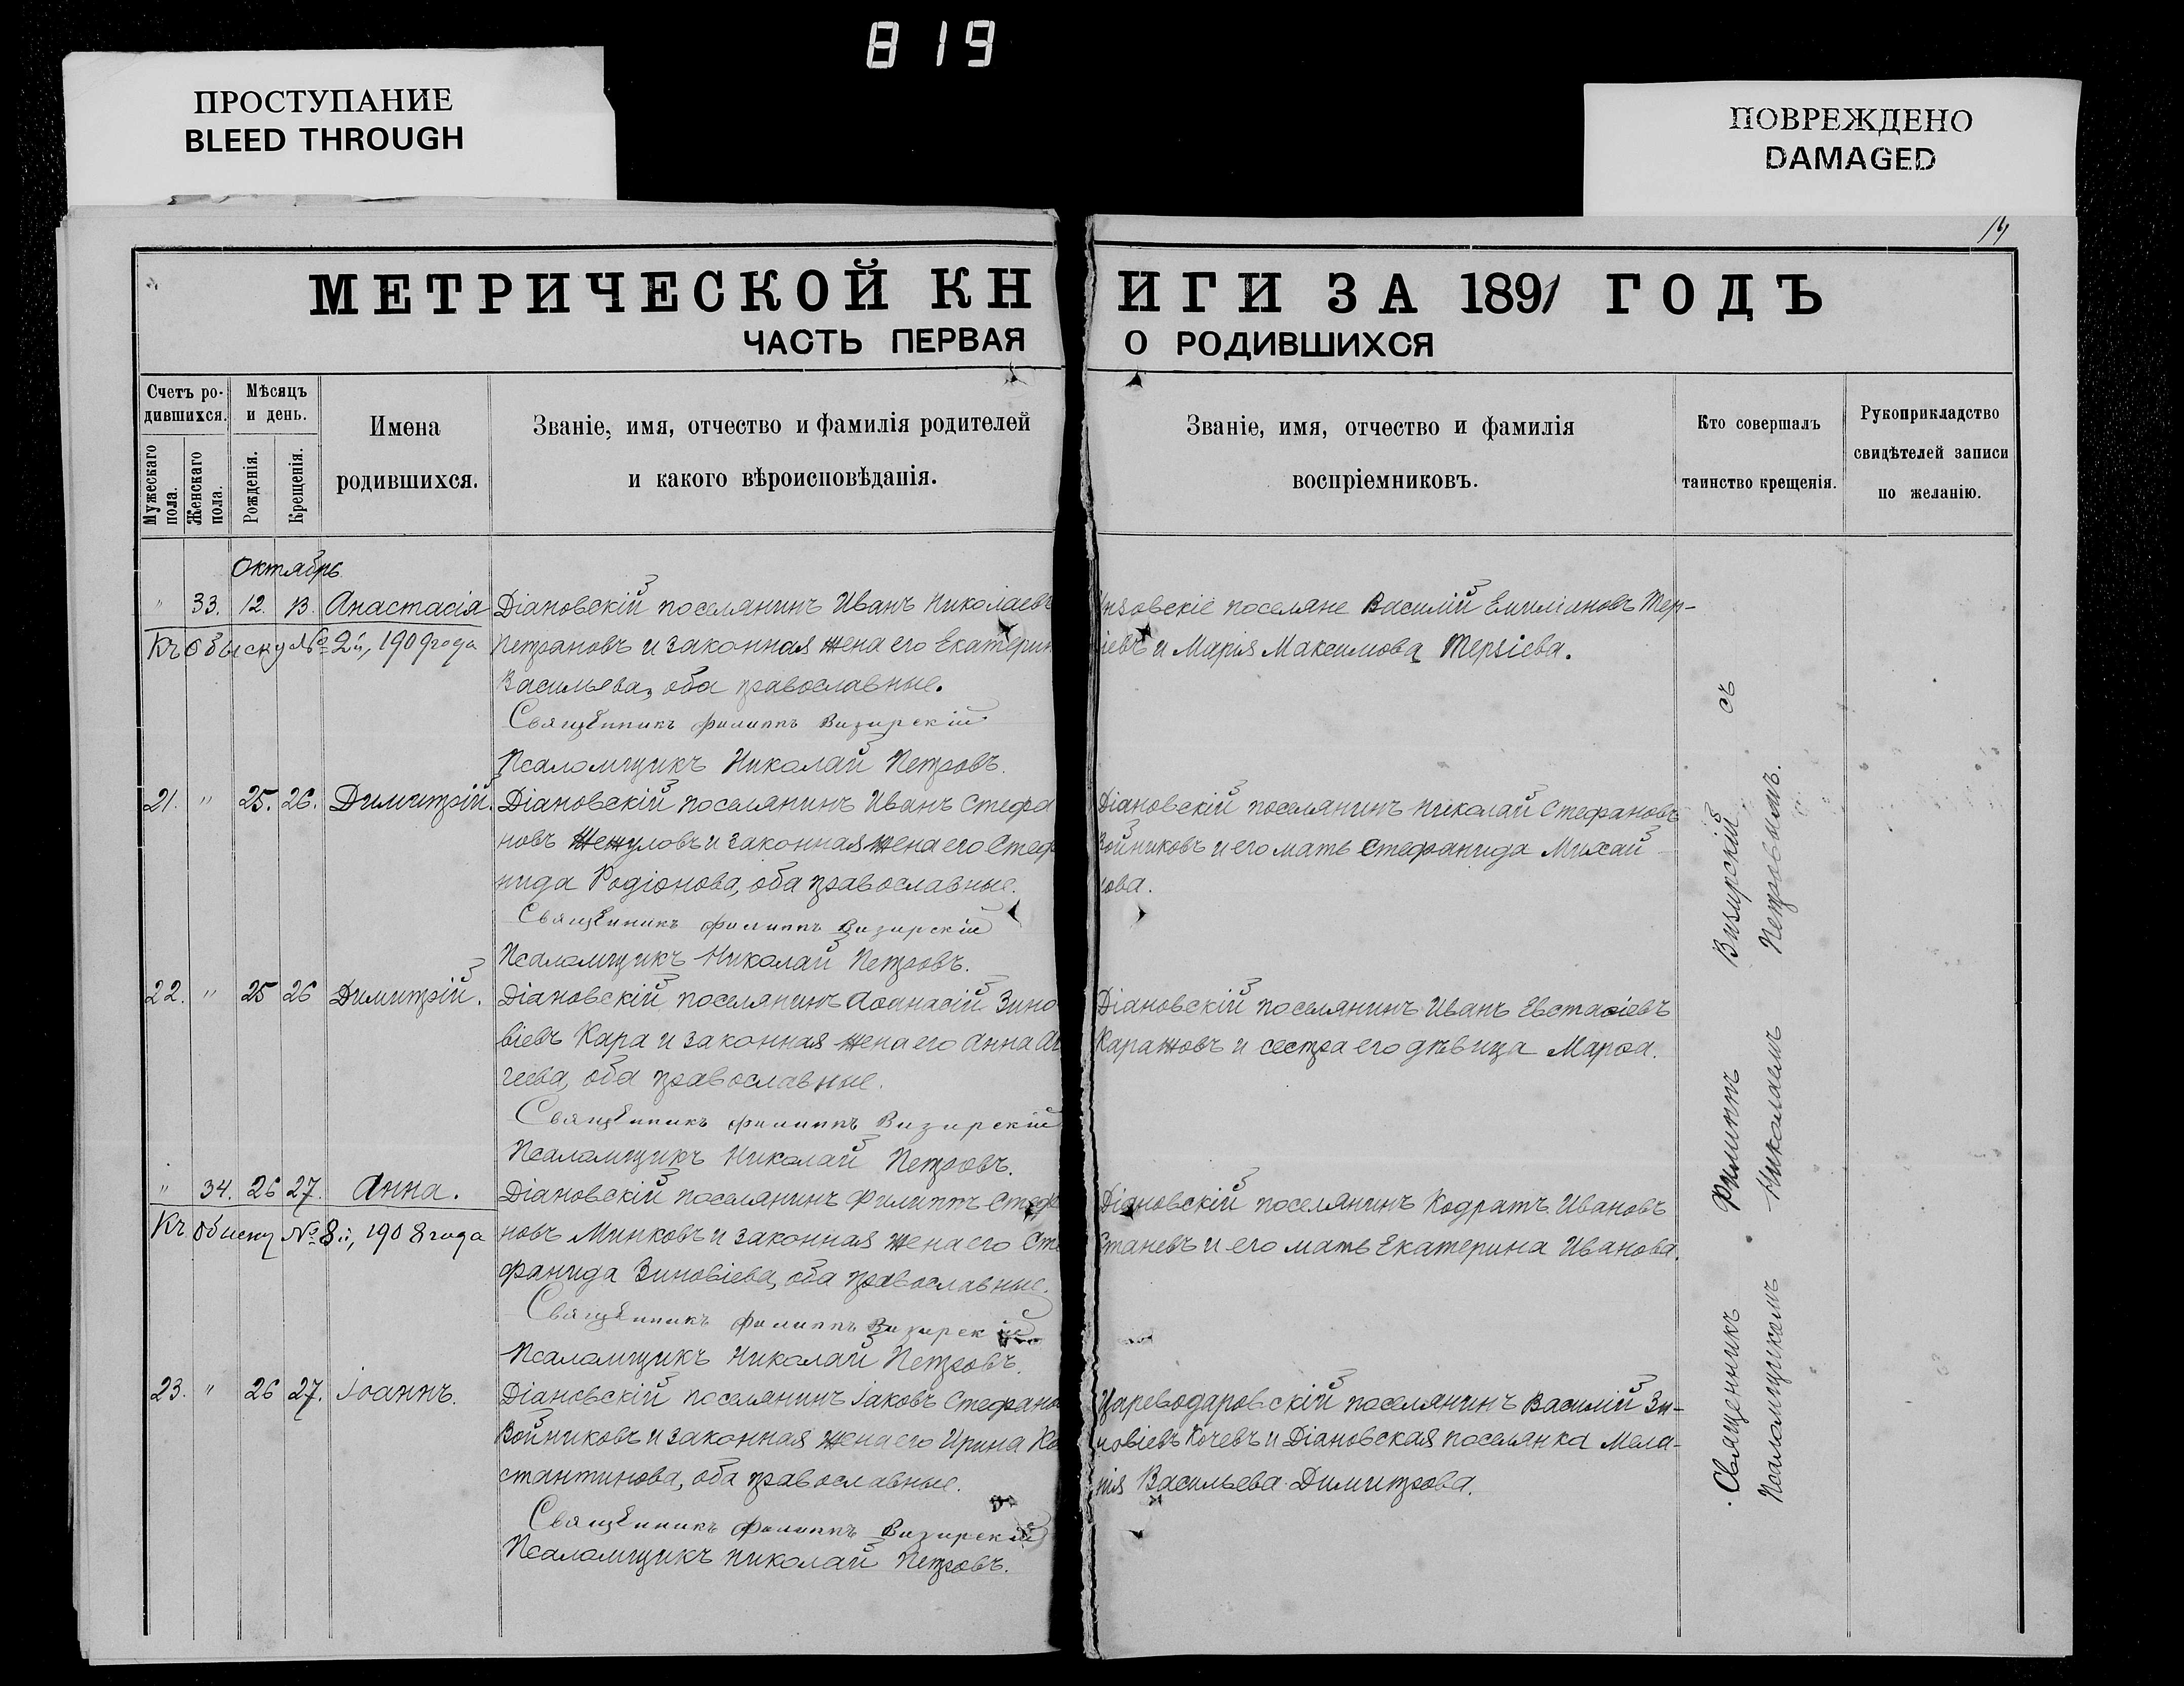 819
ПРОСТУПАНИЕ
BLEED THROUGH
ПОВРЕЖДЕНО
DAMAGED
14
МЕТРИЧЕСКОЙ КНИГИ ЗА 1891 ГОДЪ
ЧАСТЬ ПЕРВАЯ О РОДИВШИХСЯ
Счетъ ро-
дившихся.
Мужескаго
пола.
Женскаго
пола.
Мѣсяцъ
и день.
Рожденія.
Крещенія.
Имена
родившихся.
Званіе, имя, отчество и фамилія родителей
и какого вѣроисповѣданія.
Званіе, имя, отчество и фамилія
воспріемниковъ.
Кто совершалъ
таинство крещенія.
Рукоприкладство
свидѣтелей записи
по желанію.
Октябрь
" 33. 12. 13. Анастасія
Къ обыску № 2й, 1909 года
Діановскій поселянинъ Иванъ Николаевъ
Петрановъ и законная жена его Екатерин
Васильева, оба православные.
Священникъ Филиппъ Визирскій
Псаломщикъ Николай Петровъ.
поселяне Василій Емиліановъ Тер-
ъ и Марія Максимова Терзіева.
21. " 25. 26. Димитрій.
Діановскій поселянинъ Иванъ Стефа
новъ Жекуловъ и законная жена его Стеф
нида Родіонова, оба православные.
Священникъ Филиппъ Визирскій
Псаломщикъ Николай Петровъ.
Діановскій поселянинъ Николай Стефановъ
Войниковъ и его мать Стефанида Михай-
лова.
22. " 25 26 Димитрій.
Діановскій поселянинъ Аѳанасій Зино
віевъ Кара и законная жена его Анна Ан
гева, оба православные.
Священникъ Филиппъ Визирскій
Псаломщикъ Николай Петровъ.
Діановскій поселянинъ Иванъ Евстаѳіевъ
Каражовъ и сестра его дѣвица Марѳа.
" 34. 26 27. Анна.
Къ обыску № 8й, 1908 года
Діановскій поселянинъ Филиппъ Стеф
новъ Минковъ и законная жена его Сте
фанида Зиновіева, оба православные.
Священникъ Филиппъ Визирскій
Псаломщикъ Николай Петровъ.
Діановскій поселянинъ Кодратъ Ивановъ
Станевъ и его мать Екатерина Иванова.
23. " 26 27. Іоаннъ.
Діановскій поселянинъ Іаковъ Стефано
Войниковъ и законная жена его Ирина Ко
стантинова, оба православные.
Священникъ Филиппъ Визирскій
Псаломщикъ Николай Петровъ.
Цареводаровскій поселянинъ Василій Зи-
новіевъ Кочевъ и Діановская поселянка Мела-
нія Васильева Димитрова.
Священникъ Филиппъ Визирскій съ
Псаломщикомъ Николаемъ Петровымъ.